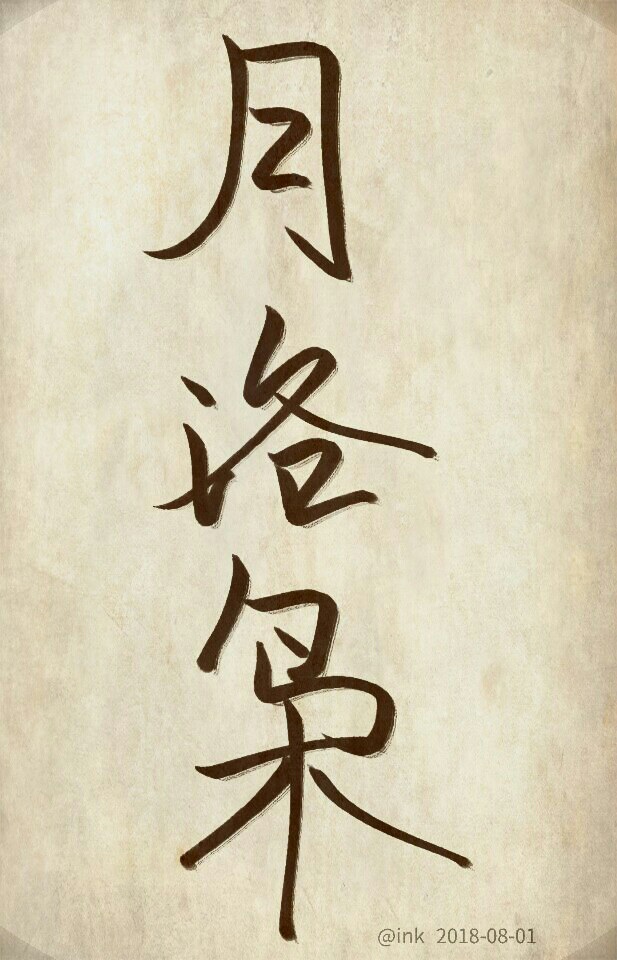 月洛枭
@ink 2018-08-01